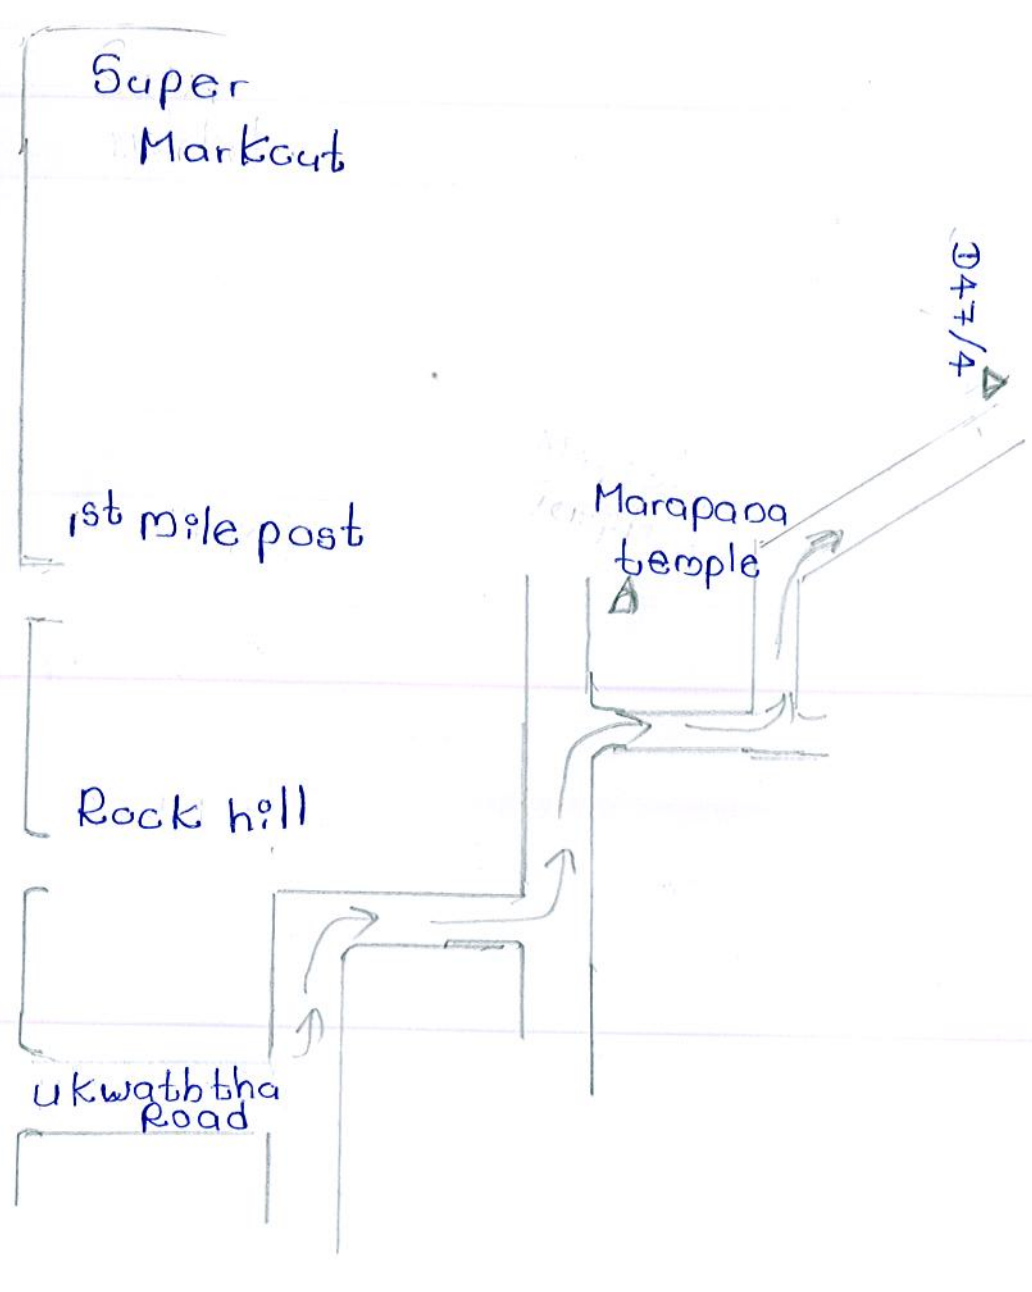 Super
Markcut
D47/4
1st mile post
Marapana
temple
Rock hill
ukwaththa
Road